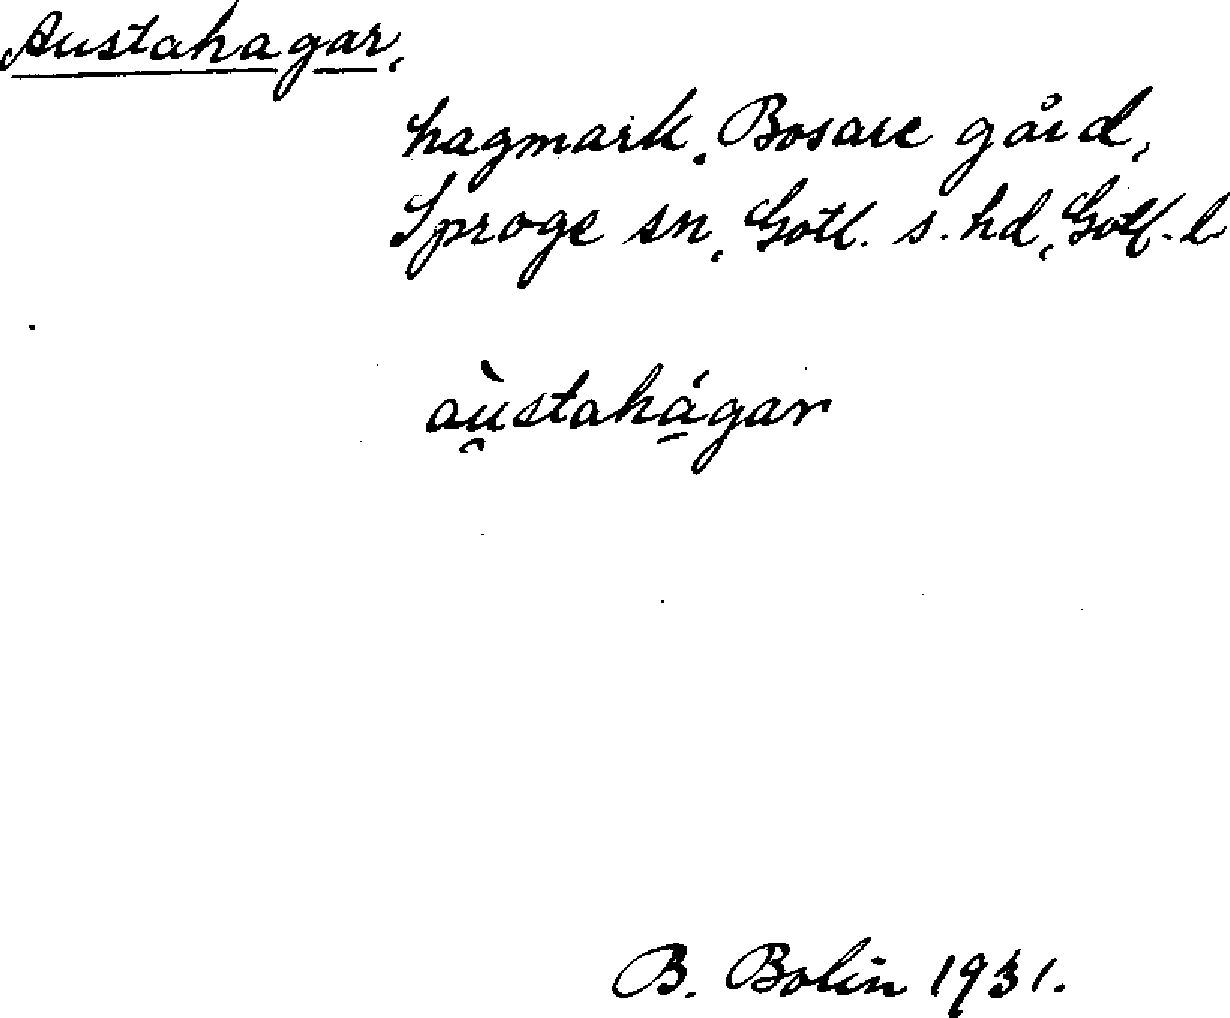 Austahagar,
hagmark, Bosarve gård,
Sproge sn, Gotl. s. hd, Gotl. l
aù̯stahá̱gar
B. Bolin 1931.